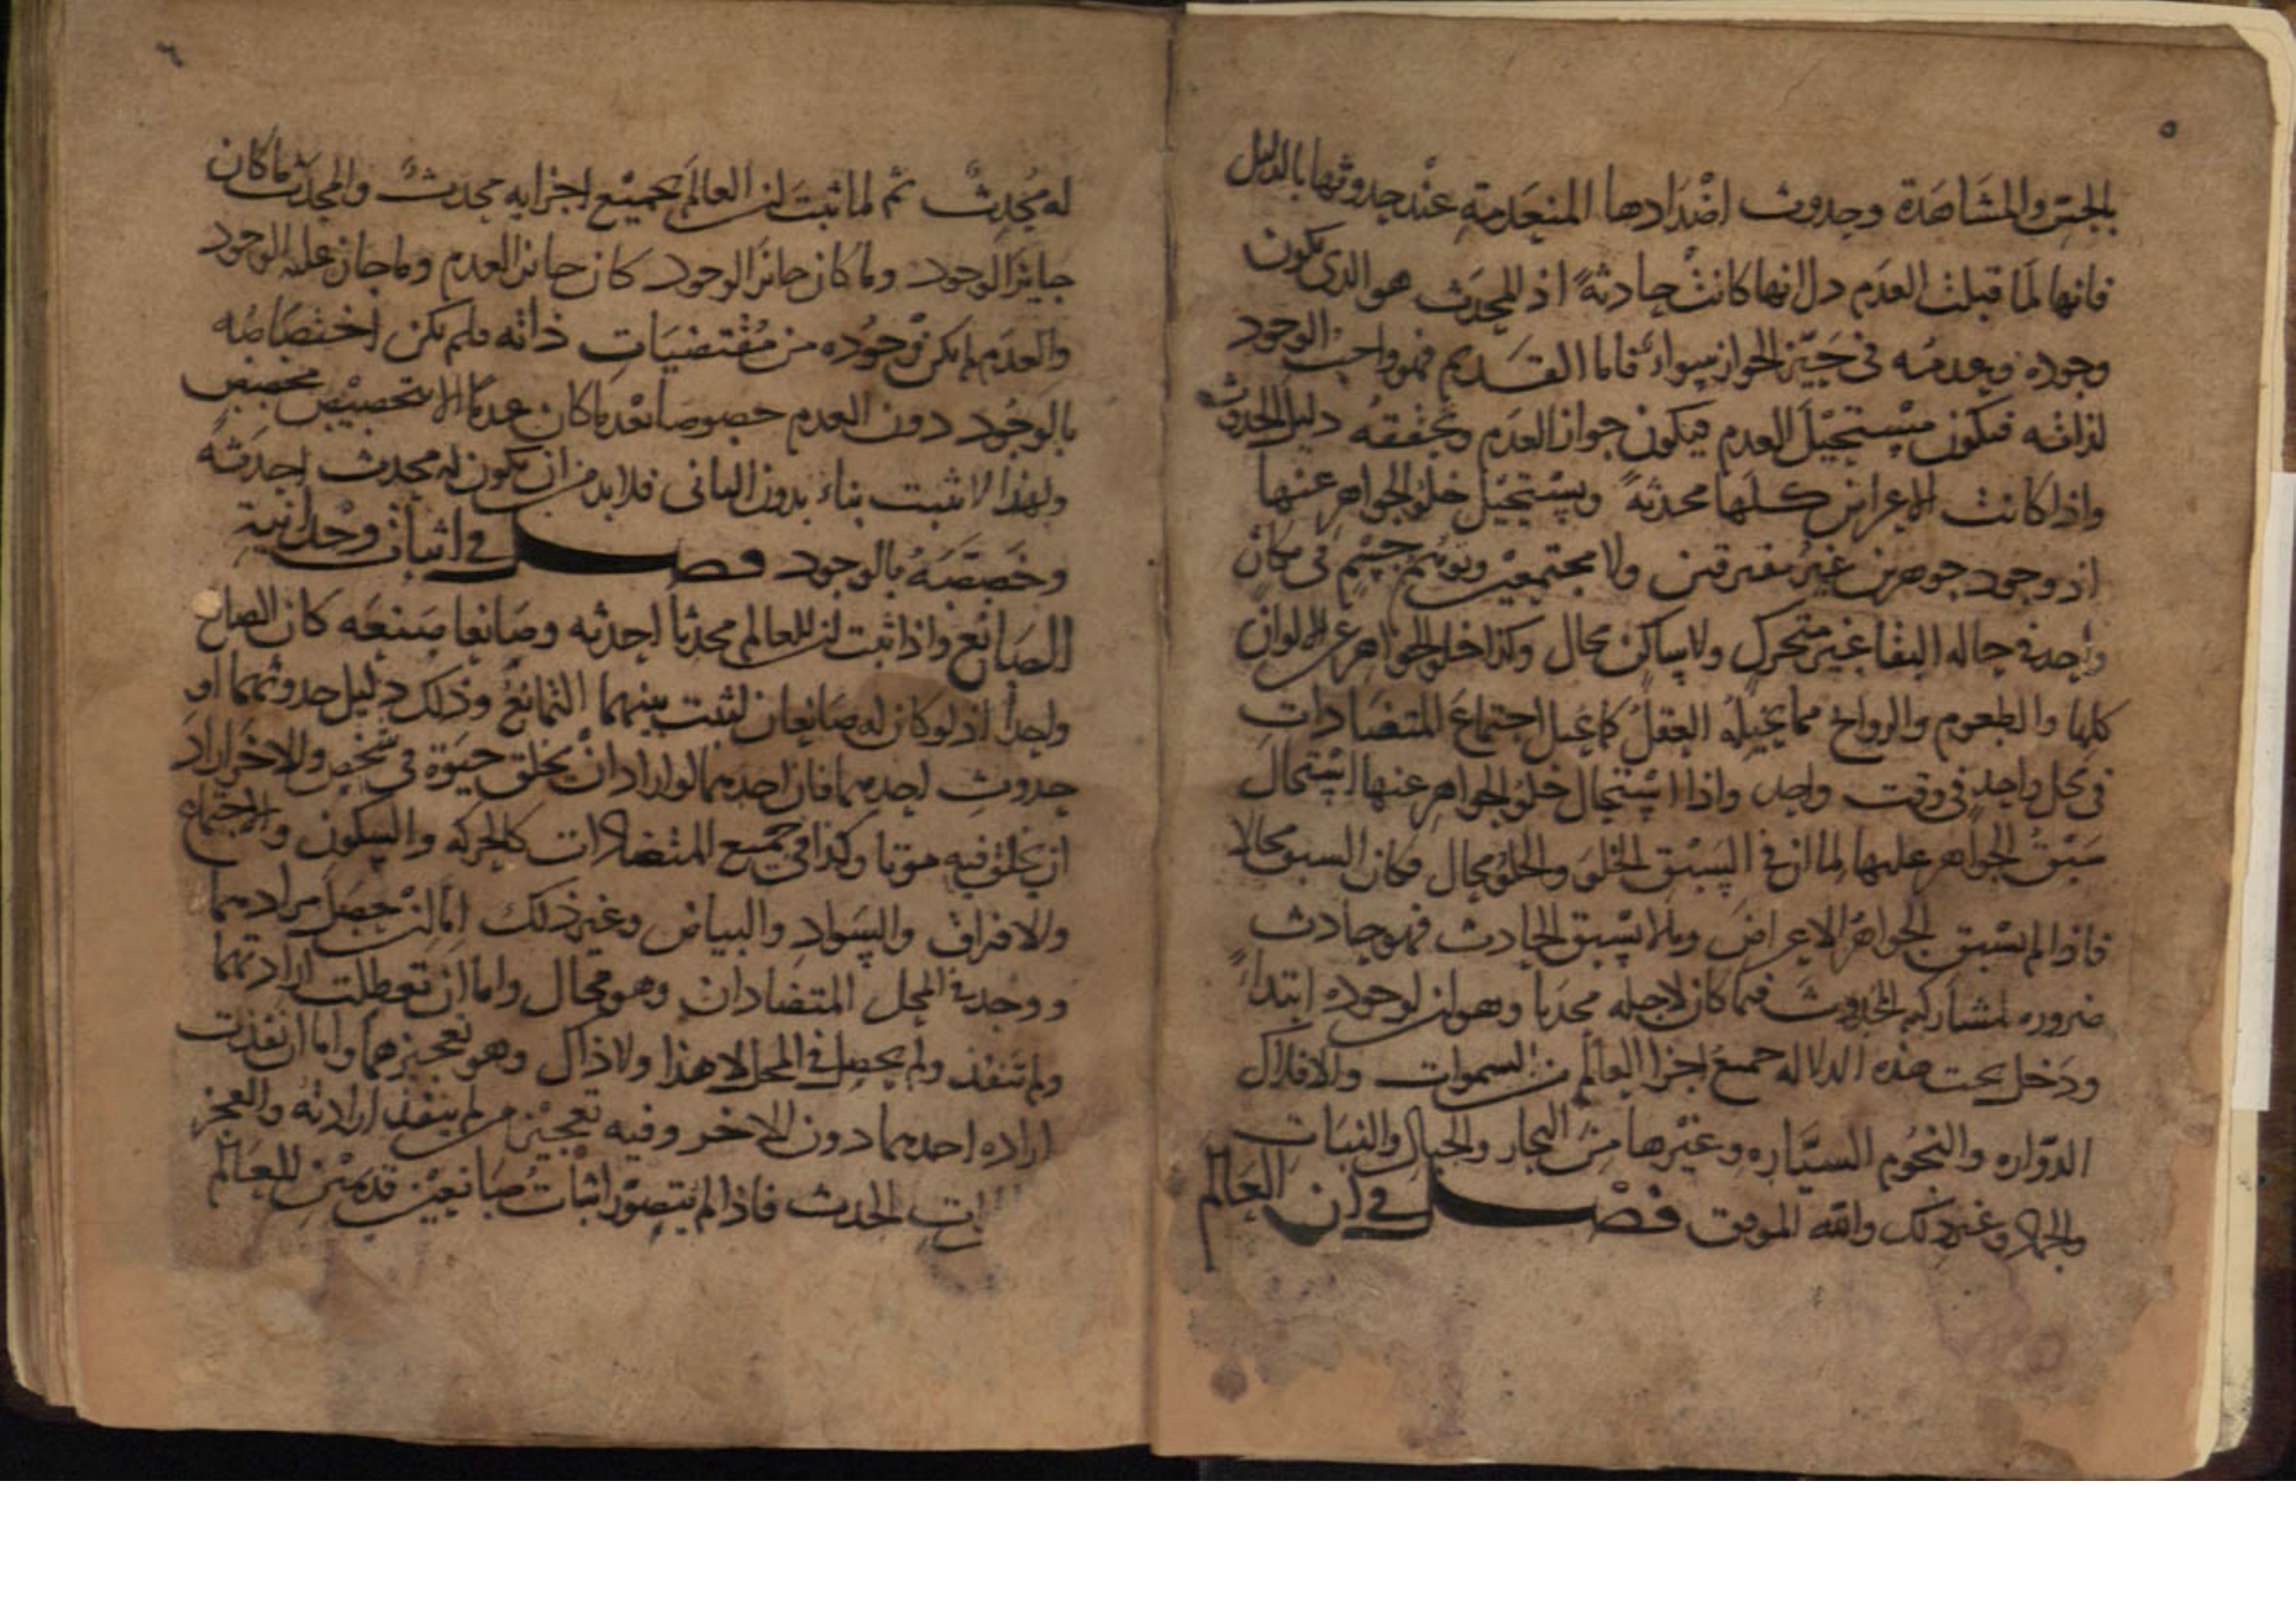 ٥
بالحس والمشاهدة وحدوث اضدادها المنعدمة عند حدوثها بالدليل
فانها لما قبلت العدم دل انها كانت حادثة اذ المحدث هو الذى يكون
وجوده وعدمه فى حيز الجواز سواء فاما القديم فهو واجب الوجود
لذاته فيكون مستحيل العدم فيكون جواز العدم وتحققه دليل الحدوث
واذا كانت الاعراض كلها محدثة ويستحيل خلو الجواهر عنها
اذ وجود جوهرين غير مفترقين ولا مجتمعين وتوهم جسم فى مكان
واحد فى حاله البقا غير متحرك ولا ساكن محال وكذا خلو الجواهر عن الالوان
كلها والطعوم والروايح مما يحيله العقل كما يحيل اجتماع المتضادات
فى محل واحد فى وقت واحد واذا استحال خلو الجواهر عنها استحال
سبق الجواهر عليها لما ان فى السبق الخلو والخلو محال فكان السبق محالا
فاذا لم يسبق الجواهر الاعراض وما لا يسبق الحادث فهو حادث
ضروره لمشاركه الحدوث فيما كان لاجله محدثا وهو ان لوجوده ابتداء
ودخل تحت هذه الدلاله جميع اجزا العالم من السموات والافلاك
الدواره والنجوم السياره وغيرها من البحار والجبال والنبات
والجماد وغير ذلك والله الموفق فصل فى ان العالم
٦
له محدث ثم لما ثبت ان العالم بجميع اجزايه محدث والمحدث ما كان
جايز الوجود وما كان جائز الوجود كان جائز العدم وما جاز عليه الوجود
والعدم لم يكن وجوده من مقتضيات ذاته فلم يكن اختصاصه
بالوجود دون العدم خصوصا بعد ما كان عدما الا بتخصيص مخصص
ولهذا لا يثبت بناء بدون البانى فلا بد من ان يكون له محدث احدثه
وخصصه بالوجود فصل فى اثبات وحدانية
الصانع واذا ثبت ان للعالم محدثا احدثه وصانعا صنعه كان الصانع
واحدا اذ لو كان له صانعان لثبت بينهما التمانع وذلك دليل حدوثهما او
حدوث احدهما فان احدهما لو اراد ان يخلق حيوة فى شخص والاخر اراد
ان يخلق فيه موتا وكذا فى جميع المتضادات كالحركه والسكون والاجتماع
والافتراق والسواد والبياض وغير ذلك اما ان حصل مرادهما
ووجد فى المحل المتضادان وهو محال واما ان تعطلت ارادتهما
ولم تنفذ ولم يحصل فى المحل لا هذا ولا ذاك وهو تعجيزهما واما ان نفذت
اراده احدهما دون الاخر وفيه تعجيز من لم ينفذ ارادته والعجز
الحدث فاذا لم يتصور اثبات صانعين قديمين للعالم